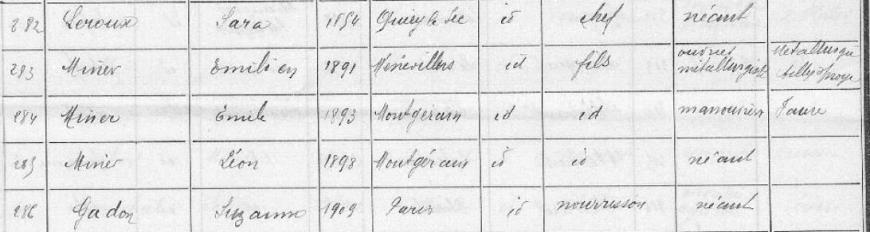 282 Leroux Sara 1854 Quiry le Sec id chef néant
283 Miner Emilien 1891 Ménévillers id fils ouvrier métallurgiste Métallurgie
284 Miner Emile 1893 Montgérain id id manouvrier Faure
285 Miner Léon 1898 Montgérain id id néant
286 Gadon Suzanne 1909 Paris id nourrisson néant